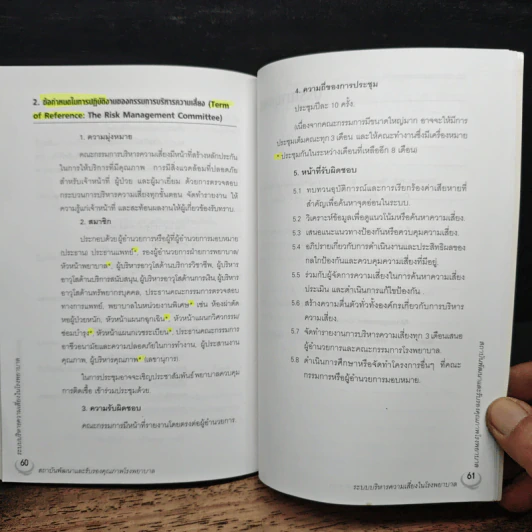 2. ข้อกำหนดในการปฏิบัติงานของกรรมการบริหารความเสี่ยง (Term
of Reference: The Risk Management Committee)
1. ความมุ่งหมาย
คณะกรรมการบริหารความเสี่ยงมีหน้าที่สร้างหลักประกัน
ในการให้บริการที่มีคุณภาพ การมีสิ่งแวดล้อมที่ปลอดภัย
สำหรับเจ้าหน้าที่ ผู้ป่วย และผู้มาเยี่ยม ด้วยการตรวจสอบ
กระบวนการบริหารความเสี่ยงทุกขั้นตอน จัดทำรายงาน ให้
ความรู้แก่เจ้าหน้าที่ และสะท้อนผลงานให้ผู้เกี่ยวข้องรับทราบ
2. สมาชิก
ประกอบด้วยผู้อำนวยการหรือผู้ที่ผู้อำนวยการมอบหมาย
(ประธาน) ประธานแพทย์*, รองผู้อำนวยการฝ่ายการพยาบาล/
หัวหน้าพยาบาล*, ผู้บริหารอาวุโสด้านบริการวิชาชีพ, ผู้บริหาร
อาวุโสด้านการสนับสนุน, ผู้บริหารอาวุโสด้านการเงิน, ผู้บริหาร
อาวุโสด้านทรัพยากรบุคคล, ประธานคณะกรรมการตรวจสอบ
ทางการแพทย์, พยาบาลในหน่วยงานพิเศษ* เช่น ห้องผ่าตัด
หอผู้ป่วยหนัก, หัวหน้าแผนกฉุกเฉิน*, หัวหน้าแผนกวิศวกรรม/
ซ่อมบำรุง*, หัวหน้าแผนกเวชระเบียน*, ประธานคณะกรรมการ
อาชีวอนามัยและความปลอดภัยในการทำงาน, ผู้ประสานงาน
คุณภาพ, ผู้บริหารคุณภาพ* (เลขานุการ)
ในการประชุมอาจจะเชิญประชาสัมพันธ์ พยาบาลควบคุม
การติดเชื้อ เข้าร่วมประชุมด้วย
3. ความรับผิดชอบ
คณะกรรมการมีหน้าที่รายงานโดยตรงต่อผู้อำนวยการ
ระบบบริหารความเสี่ยงในโรงพยาบาล
60
สถาบันพัฒนาและรับรองคุณภาพโรงพยาบาล
4. ความถี่ของการประชุม
ประชุมปีละ 10 ครั้ง
(เนื่องจากคณะกรรมการมีขนาดใหญ่มาก อาจจะให้มีการ
ประชุมเต็มคณะทุก 3 เดือน และให้คณะทำงานซึ่งมีเครื่องหมาย
* ประชุมกันในระหว่างเดือนที่เหลืออีก 8 เดือน)
5. หน้าที่รับผิดชอบ
5.1 ทบทวนอุบัติการณ์และการเรียกร้องค่าเสียหายที่
สำคัญเพื่อค้นหาจุดอ่อนในระบบ.
5.2 วิเคราะห์ข้อมูลเพื่อดูแนวโน้มหรือค้นหาความเสี่ยง.
5.3 เสนอแนะแนวทางป้องกันหรือควบคุมความเสี่ยง.
5.4 อภิปรายเกี่ยวกับการดำเนินงานและประสิทธิผลของ
กลไกป้องกันและควบคุมความเสี่ยงที่มีอยู่.
5.5 ร่วมกับผู้จัดการความเสี่ยงในการค้นหาความเสี่ยง
ประเมิน และดำเนินการแก้ไขป้องกัน.
5.6 สร้างความตื่นตัวทั่วทั้งองค์กรเกี่ยวกับการบริหาร
ความเสี่ยง.
5.7 จัดทำรายงานการบริหารความเสี่ยงทุก 3 เดือนเสนอ
ผู้อำนวยการและคณะกรรมการโรงพยาบาล.
5.8 ดำเนินการศึกษาหรือจัดทำโครงการอื่นๆ ที่คณะ
กรรมการหรือผู้อำนวยการมอบหมาย.
สถาบันพัฒนาและรับรองคุณภาพโรงพยาบาล
61
ระบบบริหารความเสี่ยงในโรงพยาบาล